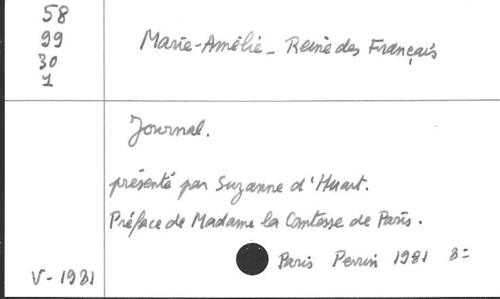 58
99
30
1
Marie-Amélie - Reine des Français
Journal.
présenté par Suzanne d'Huart.
Préface de Madame la Comtesse de Paris.
Paris Perrin 1981 8=
V-1981